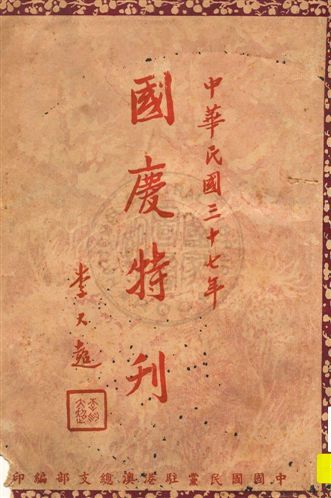 中華民國三十七年
國慶特刊
李大超
中國國民黨駐港澳總支部編印